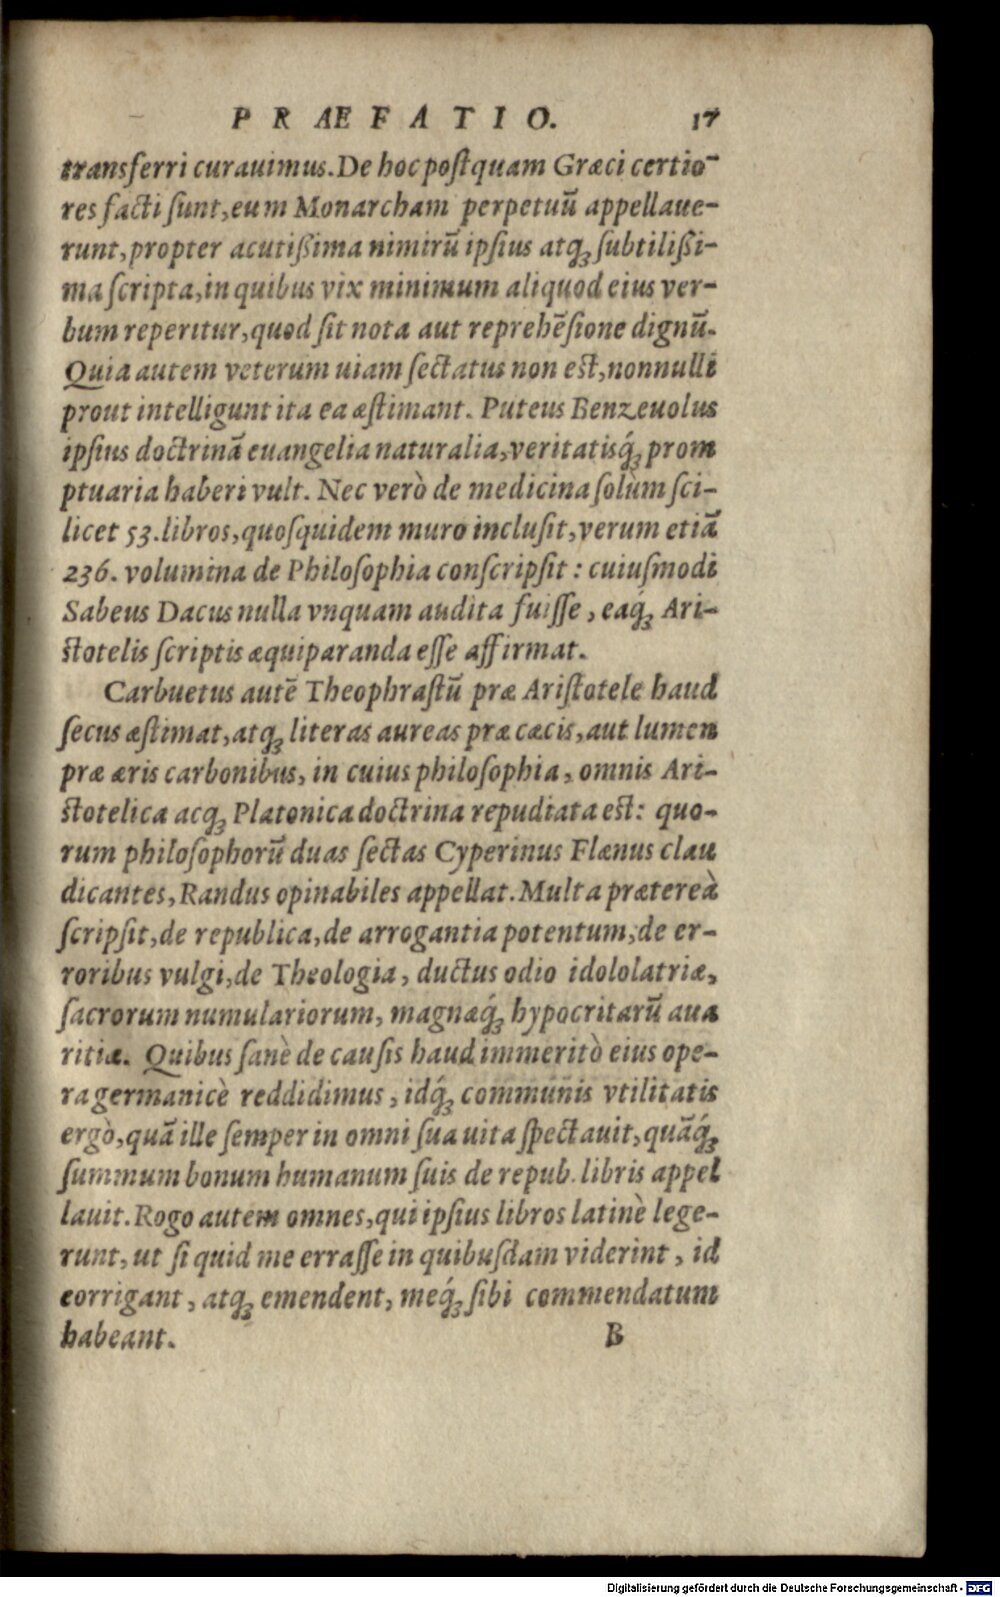 PRÆFATIO. 17
transferri curauimus. De hoc postquam Græci certio-
res facti sunt, eum Monarcham perpetuũ appellaue-
runt, propter acutißima nimirũ ipsius atq; subtilißi-
ma scripta, in quibus vix minimum aliquod eius ver-
bum reperitur, quod sit nota aut reprehẽsione dignũ.
Quia autem veterum uiam sectatus non est, nonnulli
prout intelligunt ita ea æstimant. Puteus Benzeuolus
ipsius doctrinã euangelia naturalia, veritatisq́; prom
ptuaria haberi vult. Nec verò de medicina solùm sci-
licet 53. libros, quosquidem muro inclusit, verum etiã
236. volumina de Philosophia conscripsit: cuiusmodi
Sabeus Dacus nulla vnquam audita fuisse, eaq́; Ari-
stotelis scriptis æquiparanda esse affirmat.
Carbuetus autẽ Theophrastũ præ Aristotele haud
secus æstimat, atq; literas aureas præ cæcis, aut lumen
præ æris carbonibus, in cuius philosophia, omnis Ari-
stotelica acq; Platonica doctrina repudiata est: quo-
rum philosophorũ duas sectas Cyperinus Flænus clau
dicantes, Randus opinabiles appellat. Multa prætereà
scripsit, de republica, de arrogantia potentum, de er-
roribus vulgi, de Theologia, ductus odio idololatriæ,
sacrorum numulariorum, magnæq́; hypocritarũ aua
ritiæ. Quibus sanè de causis haud immeritò eius ope-
ra germanicè reddidimus, idq́; communis vtilitatis
ergò, quã ille semper in omni sua uita spectauit, quãq́;
summum bonum humanum suis de repub. libris appel
lauit. Rogo autem omnes, qui ipsius libros latinè lege-
runt, ut si quid me errasse in quibusdam viderint, id
corrigant, atq; emendent, meq́; sibi commendatum
habeant. B
Digitalisierung gefördert durch die Deutsche Forschungsgemeinschaft - DFG